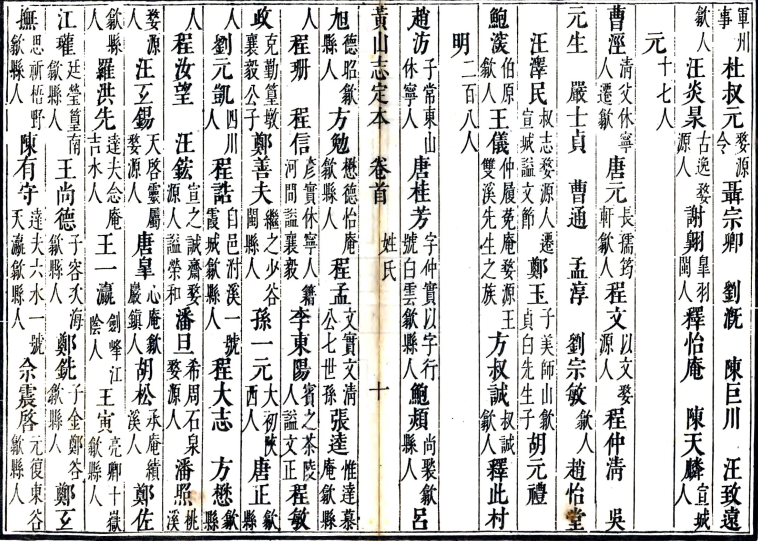 軍州事 杜叔元 婺源令 聶宗卿 劉漑 陳巨川 汪致遠
歙人 汪炎杲 古逸婺源人 謝翱 臯羽閩人 釋怡庵 陳天麟 宣城人
元 十七人
曹涇 清父休寧人遷歙 唐元 長孺筠軒歙人 程文 以文婺源人 程仲清 吳
元生 嚴士貞 曹通 孟淳 劉宗敏 歙人 趙怡堂
汪澤民 叔志婺源人遷宣城謚文節 鄭玉 子美師山歙貞白先生子 胡元禮
鮑深 伯原歙人 王儀 仲履莬庵婺源王雙溪先生之族 方叔誠 叔誠歙人 釋此村
明 二百八人
趙汸 子常東山休寧人 唐桂芳 字仲實以字行號白雲歙縣人 鮑頻 尚褧歙縣人 呂
黃山志定本 卷首 姓氏 十
旭 德昭歙縣人 方勉 懋德怡庵歙縣人 程孟 文實文清公七世孫 張逵 惟達慕庵歙縣
人 程珊 程信 彥實休寧人籍河間謚襄毅 李東陽 賓之茶陵人謚文正 程敏
政 克勤篁墩襄毅公子 鄭善夫 繼之少谷閩縣人 孫一元 太初陝西人 唐正 歙縣
人 劉元凱 四川人 程誥 自邑溪一號霞城歙縣人 程大志 方懋 歙縣
人 程汝望 汪鋐 宣之誠齋婺源人謚榮和 潘旦 希周石泉婺源人 潘照 桃溪
婺源 汪玄錫 天啓靈屬婺源人 唐臯 心庵歙巖鎮人 胡松 承庵績溪人 鄭佐
歙縣人 羅洪先 達夫念庵吉水人 王一瀛 劍峰江陰人 王寅 亮卿十嶽歙縣人
江瓘 廷瑩篁南歙縣人 王尚德 子容海歙縣人 鄭銑 子金鄭谷歙縣人 鄭玄
撫 思祈梧野歙縣人 陳有守 達夫六水一號天瀛歙縣人 佘震啓 元復東谷歙縣人